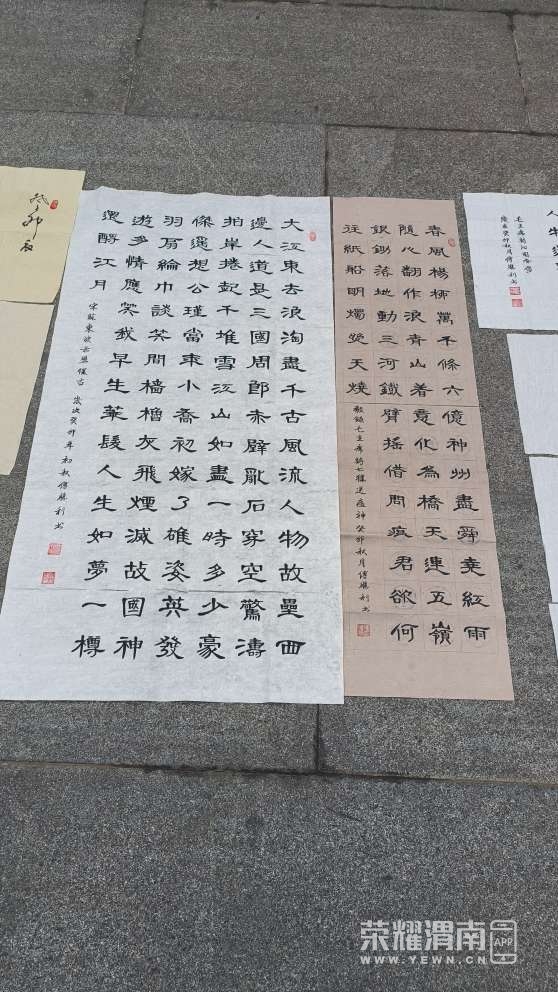 毛主席詞沁園春雪
歲在癸卯秋月傅勝利書
春風楊柳萬千條六億神州盡舜堯紅雨
隨心翻作浪青山着意化為橋天連五嶺
銀鋤落地動三河鐵臂搖借問瘟君欲何
往紙船明燭照天燒 敬錄毛主席詩七律送瘟神癸卯秋月傅勝利书
大江東去浪淘盡千古風流人物故壘西
邊人道是三國周郎赤壁亂石穿空驚濤
拍岸捲起千堆雪江山如畫一時多少豪
傑遙想公瑾當年小喬初嫁了雄姿英發
羽扇綸巾談笑間檣櫓灰飛煙滅故國神
遊多情應笑我早生華髮人生如夢一樽
還酹江月 宋蘇東坡赤壁懷古 歲次癸卯年初秋傅勝利书
荣耀渭南 APP
WWW.YEWN.CN